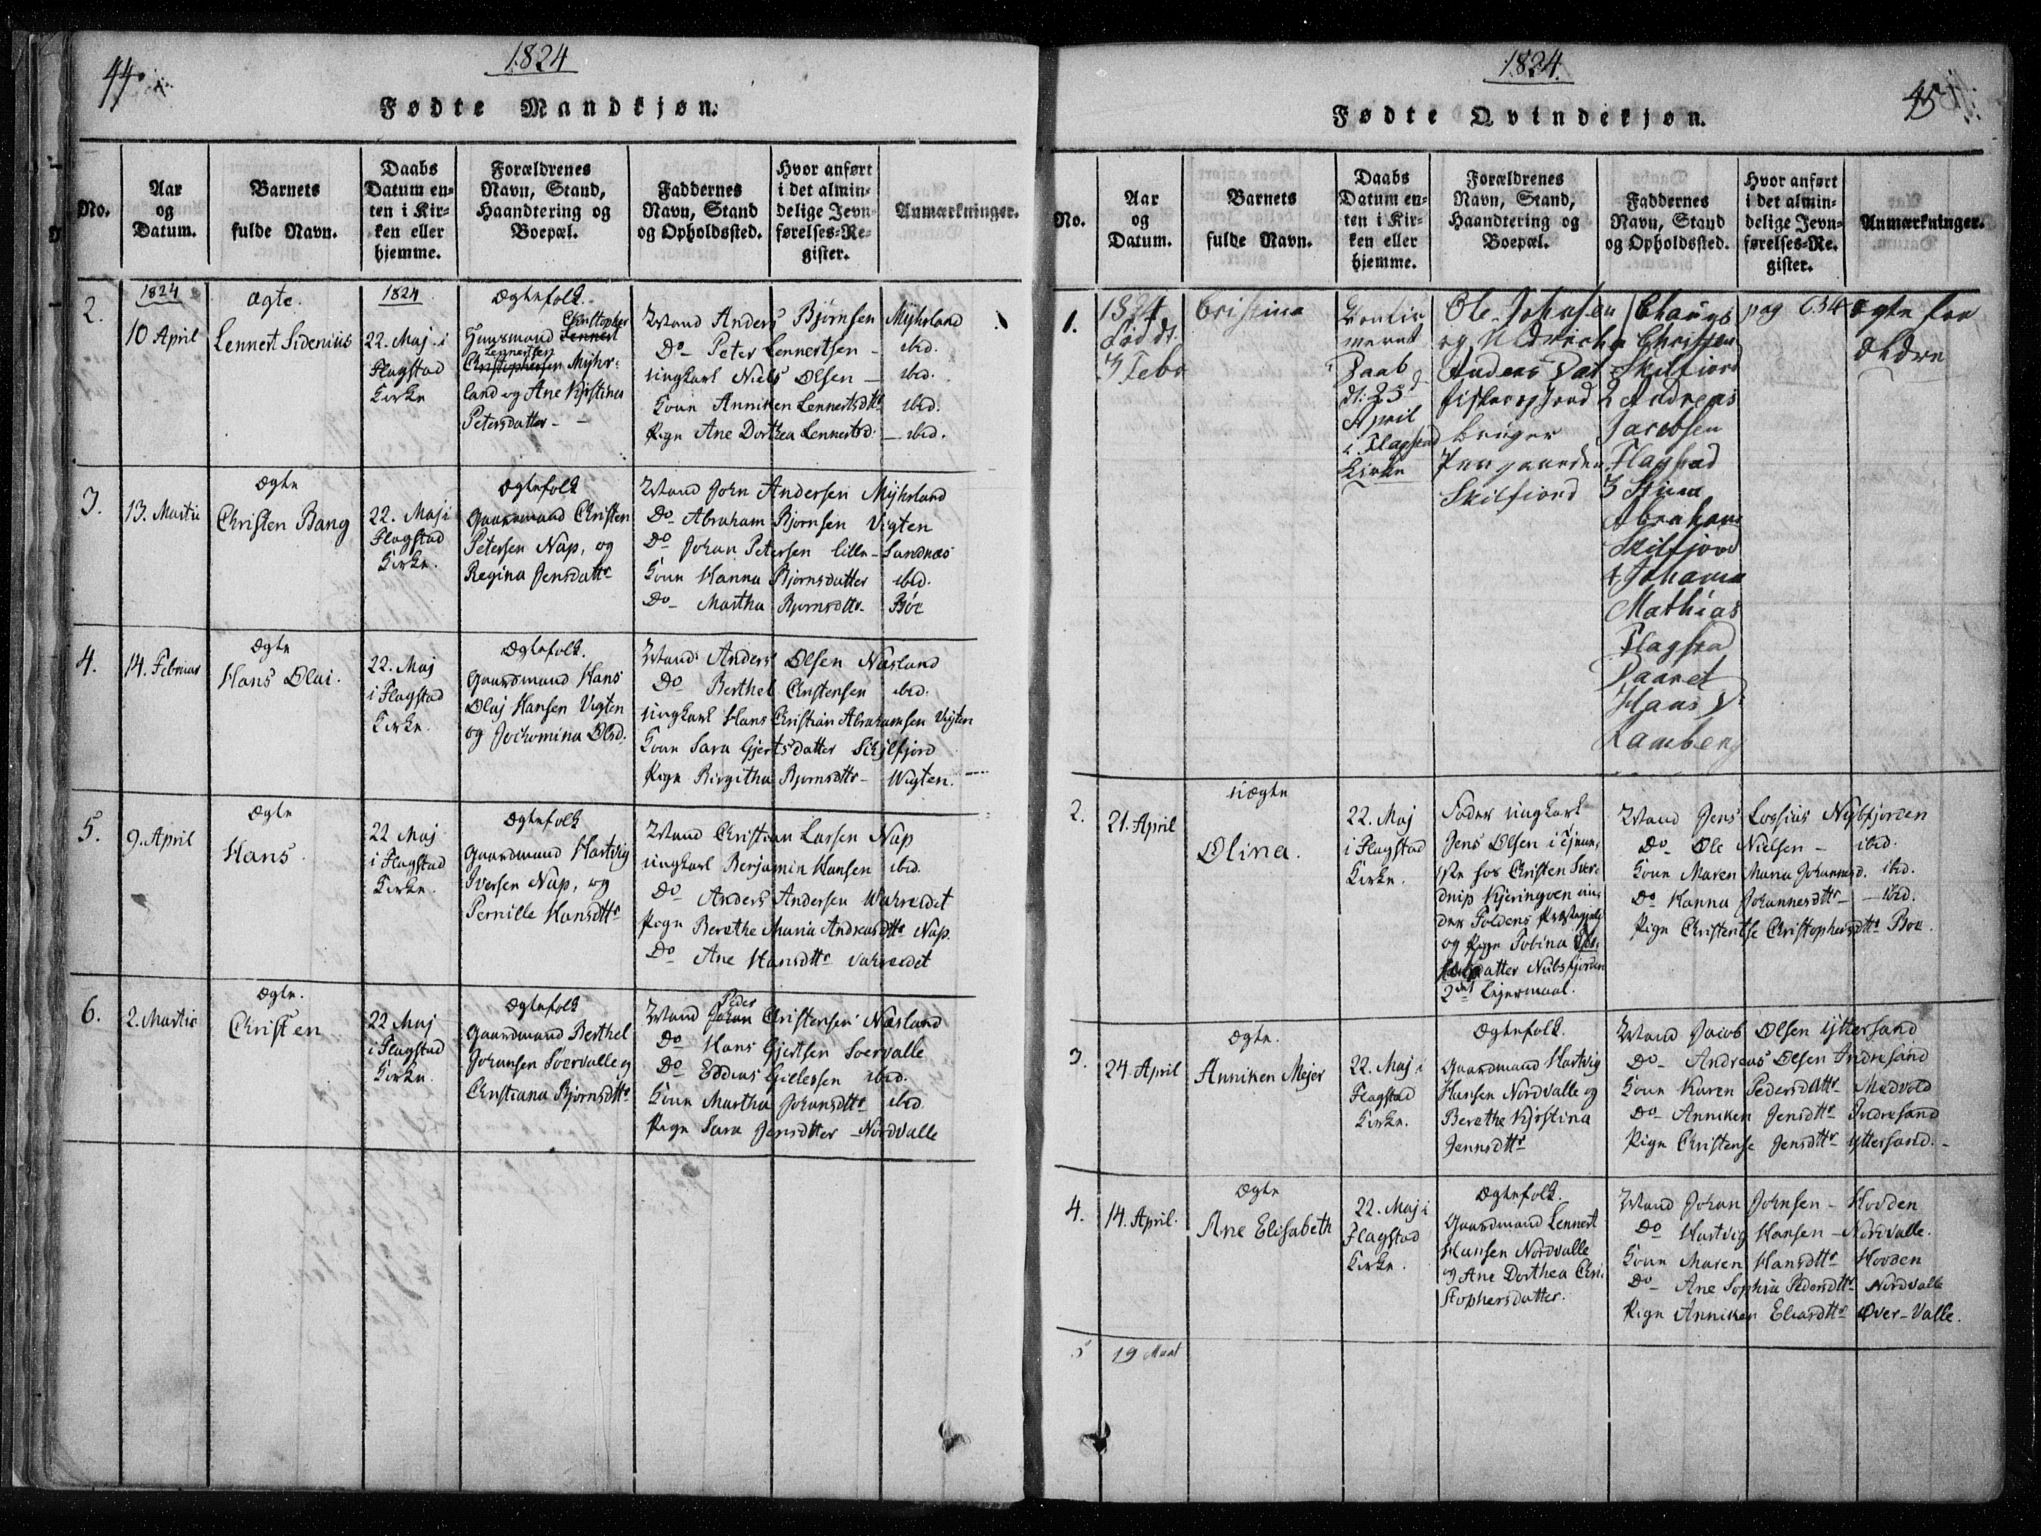 44
1824
Fødte Mandkjøn.
No.
Aar
og
Datum.
Barnets
fulde Navn.
Daabs
Datum en-
ten i Kir-
ken eller
hjemme.
Forældrenes
Navn, Stand,
Haandtering og
Boepæl.
Faddernes
Navn, Stand
og Opholdssted.
Hvor anført
i det almin-
delige Jevn-
førelses-Re-
gister.
Anmærkninger.
2.
1824
10 April
ægte.
Lennert Sidenius
1824
22. Maj i
Flagstad
Kirke
Ægtefolk.
Huusmand Christopher
Lennertsen
Myhr-
land og Ane Kirstina
Petersdatter
Mand Anders Bjørnsen Myhrland
Do Peter Lennertsen - ibid.
Ungkarl Niels Olsen - ibid.
Kone Anniken Lennertsdttr ibid.
Pige Ane Dorthea Lennertsd. - ibid.
3.
13. Martii
Ægte
Christen Bang
22. Maj i
Flagstad
Kirke.
Ægtefolk
Gaardmand Christen
Petersen Nap, og
Regina Jensdattr
Mand John Andersen Myhrland
Do Abraham Bjørnsen Vigten
Do Johan Petersen Lille-Sandnæs
Kone Hanna Bjørnsdatter ibid.
Do Martha Bjørnsdttr Böe
4.
14. Februar
Ægte
Hans Olai.
22. Maj
i Flagstad
Kirke.
Ægtefolk.
Gaardmand Hans
Olaj Hansen Vigten
og Jochomina Olsd.
Mand Anders Olsen Næsland
Do Berthel Christensen ibid.
Ungkarl Hans Christian Abrahamsen Vigten
Kone Sara Gjertsdatter Skjelfjord
Pige Birgitha Bjørnsdttr Wigten.
5.
9. April
Ægte
Hans.
22 Maj
i Flagstad
Kirke.
Ægtefolk
Gaardmand Hartvig
Iversen Nap, og
Pernille Hansdttr
Mand Christian Larsen Nap
Ungkarl Benjamin Hansen ibid.
Do Anders Andersen
Pige Berethe Maria Andreasdttr Nap.
Do Ane Hansdttr
6.
2. Martii
Ægte.
Christen
22 Maj
i Flagstad
Kirke.
Ægtefolk
Gaardmand Berthel
Johansen Soervalle og
Christiana Bjørnsdttr
Peder
Mand Johan Christensen Næsland
Do Hans Gjertsen Soervalle
Do ibid.
Kone Martha Johansdttr ibid
Pige Sara Jensdtter Nordvalle
1824.
45
Fødte Qvindekjøn.
No.
Aar
og
Datum.
Barnets
fulde Navn.
Daabs
Datum en-
ten i Kir-
ken eller
hjemme.
Forældrenes
Navn, Stand,
Haandtering og
Boepæl.
Faddernes
Navn, Stand
og Opholdssted.
Hvor anført
i det almin-
delige Jevn-
førelses-Re-
gister.
Anmærkninger.
1.
1824
født dt.
3 Febr
Cristina
Daab
dt. 25
April
i Flagstad
Kirke
Ole Johnsen
og
Anders Dat
Skilfiord
Christen
Skilfiord
2 Andreas
Jacobsen
Flagstad
3 Stina
Abraham
Skilfjord
4 Johanna
Mathias
Flagstad
Hans
Ramberg
pag 634
ægte for
ældre
2.
21. April
Uægte
Olina.
22. Maj
i Flagstad
Kirke.
Fader Ungkarl
Jens Olsen i Tjene-
ste hos Christen Sver-
drup Kjeringøen un-
der Foldens Præstegjeld
og Pige Tobina
datter Nubsfjorden
2det Lejermaal.
Mand Jens Lossius Nubfjorden
Do Ole Nielsen - ibid.
Kone Maren Maria Johannesd. ibid.
Do Hanna Johannesdttr - ibid.
Pige Christentse Christophersdttr Böe.
3.
24. April
Ægte.
Anniken Mejer
22. Maj i
Flagstad
Kirke.
Ægtefolk.
Gaardmand Hartvig
Hansen Nordvalle og
Berethe Kirstina
Jensdttr
Mand Jacob Olsen Yttersand
Do Andreas Olsen Indresand
Kone Karen Pedersdattr Medvold
Do Anniken Jensdttr Indresand
Pige Christense Jensdttr Yttersand.
4.
14. April.
Ægte
Ane Elisabeth
22. Maj i
Flagstad
Kirke.
Ægtefolk.
Gaardmand Lennert
Hansen Nordvalle
og Ane Dorthea Chri-
stophersdatter.
Mand Johan Johnsen - Hovden
Do Hartvig Hansen - Nordvalle.
Kone Maren Hansdttr Hovden
Do Ane Sophia Pedersdttr Nordvalle
Pige Anniken Eliasdttr Över-Valle.
5
19 Mart